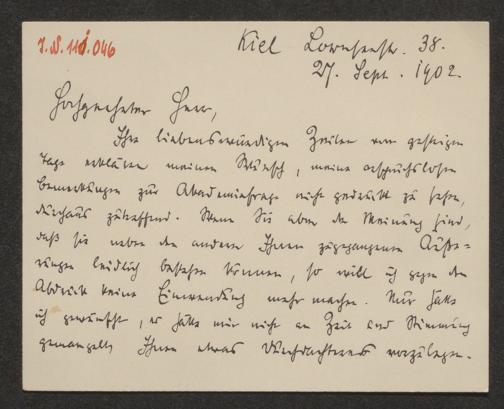 J.N. 111.046
Kiel Lornsenstr. 38.
27. Sept. 1902.
Hochgeehrter Herr,
Ihre liebenswürdigen Zeilen vom gestrigen
Tage erklären meinen Wunsch, meine anspruchslosen
Bemerkungen zur Akademiefrage nicht gedruckt zu sehen,
durchaus zutreffend. Wenn Sie aber der Meinung sind,
daß sie neben den anderen Ihnen zugegangenen Äuße-
rungen leidlich bestehen können, so will ich gegen den
Abdruck keine Einwendung mehr machen. Nur hätte
ich gewünscht, es hätte mir nicht an Zeit und Stimmung
gemangelt, Ihnen etwas Durchdachteres vorzulegen.